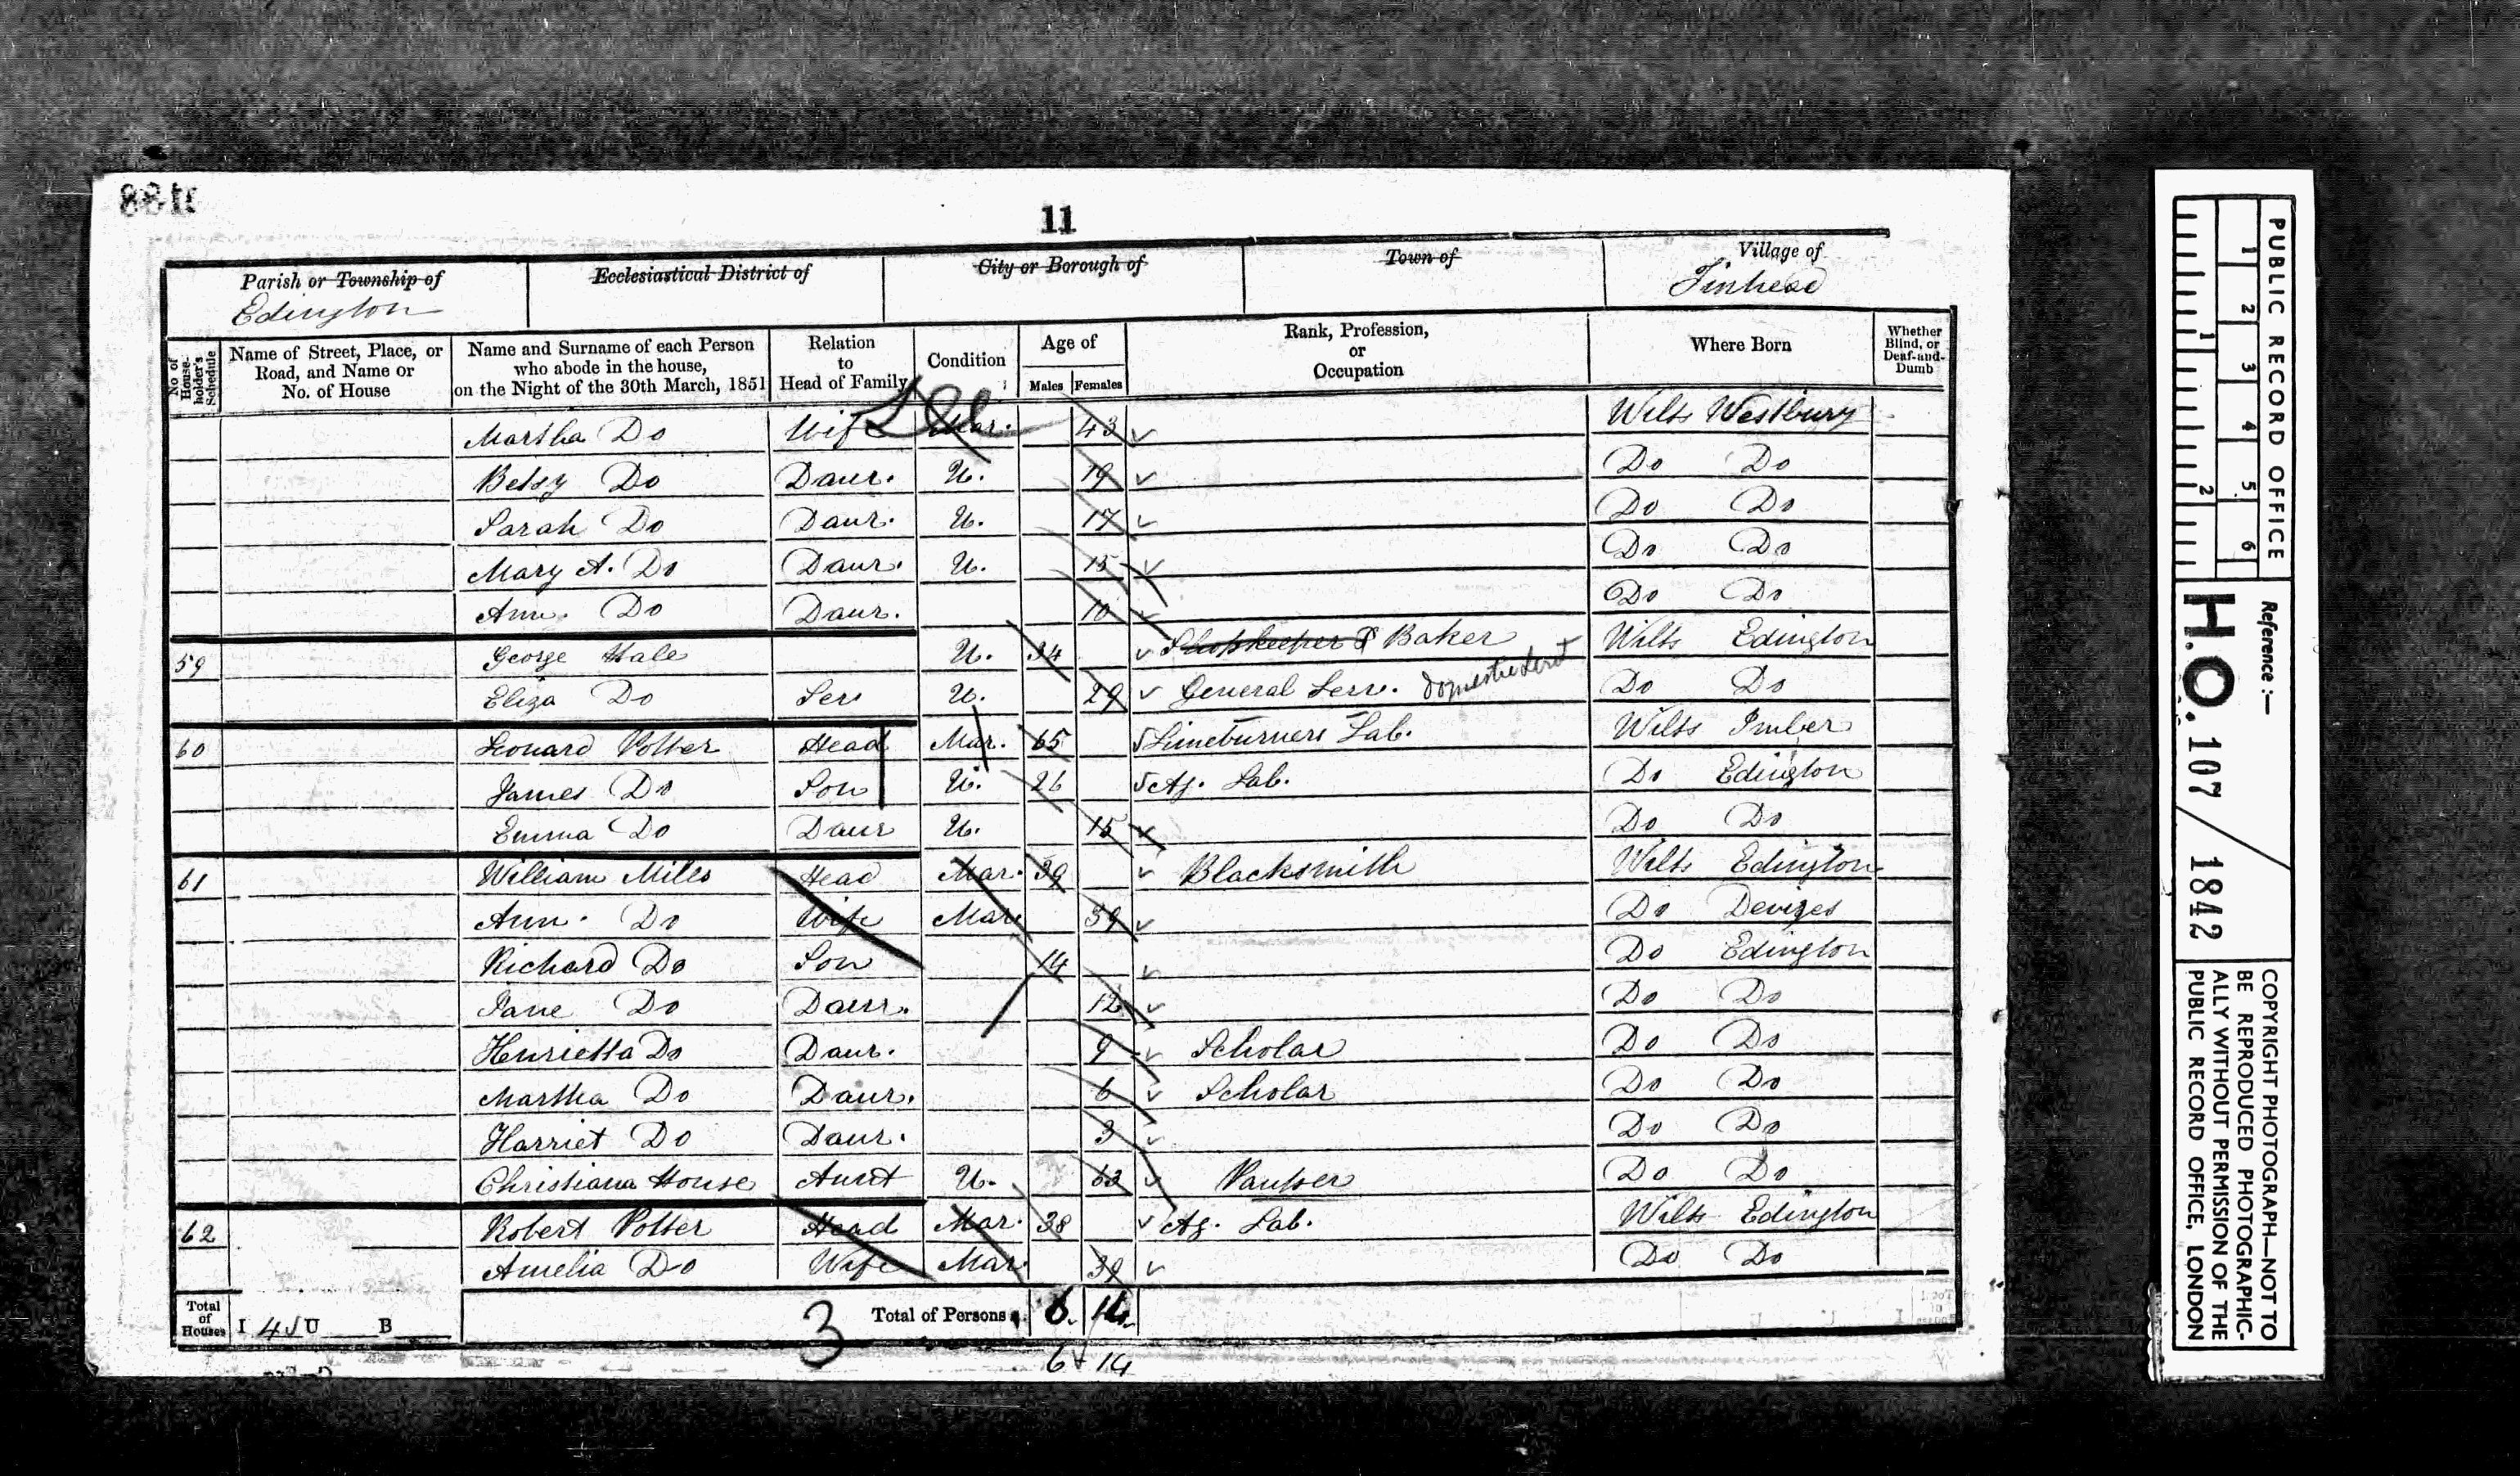 11
Parish or Township of Ecclesiastical District of City or Borough of Town of Village of
Edington Tinhead
No. of House-holder's Schedule Name of Street, Place, or Road, and Name or No. of House Name and Surname of each Person who abode in the house, on the Night of the 30th March, 1851 Relation to Head of Family Condition Age of Males Females Rank, Profession, or Occupation Where Born Whether Blind, or Deaf-and-Dumb
Martha Do Wife Mar. 43 Wilts Westbury
Betsy Do Daur. U. 19 Do Do
Sarah Do Daur. U. 17 Do Do
Mary A. Do Daur. U. 15 Do Do
Ann Do Daur. 10 Do Do
59 George Hale U. 34 Shopkeeper & Baker Wilts Edington
Eliza Do Ser U. 29 General Serv. Domestic Servt Do Do
60 Leonard Potter Head Mar. 65 Limeburners Lab. Wilts Imber
James Do Son U. 26 Ag. Lab. Do Edington
Emma Do Daur U. 15 Do Do
61 William Miles Head Mar. 39 Blacksmith Wilts Edington
Ann Do Wife Mar. 39 Do Devizes
Richard Do Son 14 Do Edington
Jane Do Daur. 12 Do Do
Henrietta Do Daur. 9 Scholar Do Do
Martha Do Daur. 6 Scholar Do Do
Harriet Do Daur. 3 Do Do
Christiana House Aunt U. 62 Pauper Do Do
62 Robert Potter Head Mar. 38 Ag. Lab. Wilts Edington
Amelia Do Wife Mar. 39 Do Do
Total of Houses I 4 U B 3 Total of Persons 6. 14.
6 14
PUBLIC RECORD OFFICE
1 2 3 4 5 6
1 2
Reference :—
H.O. 107 / 1842
COPYRIGHT PHOTOGRAPH—NOT TO
BE REPRODUCED PHOTOGRAPHIC-
ALLY WITHOUT PERMISSION OF THE
PUBLIC RECORD OFFICE, LONDON